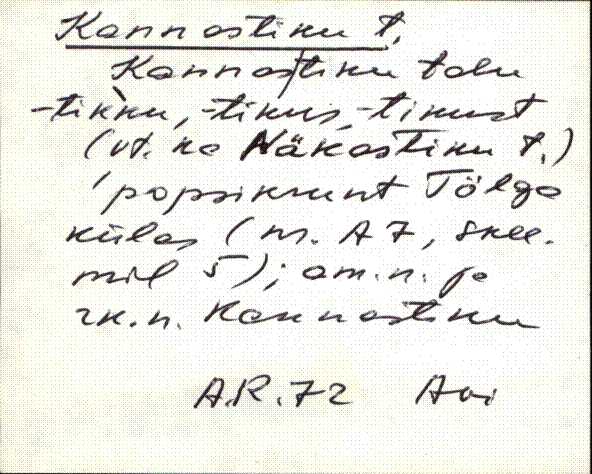 Kannastiku t.
Kannastiku talu
-tik̀ku, -tikus, -tikust
(vt. ka Näkastiku t.)
'popsikrunt Tõlga
külas (nr. A7, skee-
mil 5); am.n. ja
rk.n. Kannastiku
A.R.72 Avi